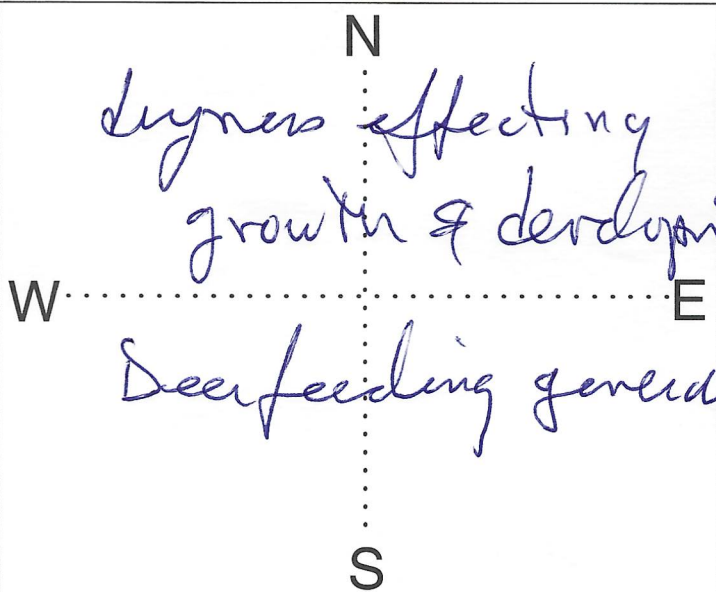 N
dryness effecting
growth & developm
W E
Deer feeding general
S